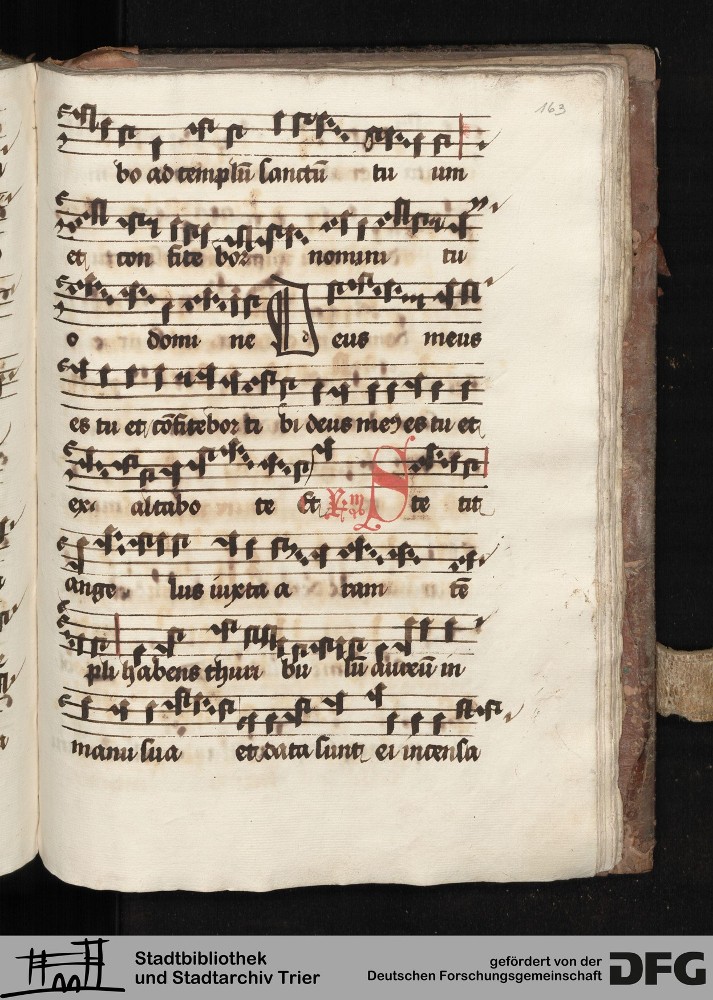 163
bo ad templū sanctū tu um
et con fite bor nomini tu
o domi ne Deus meus
es tu et cōfitebor ti bi deus meꝰ es tu et
ex altabo te Et S te tit
ange lus iuxta a ram tē
pli habens thuri bu lū aureū in
manu sua et data sunt ei incensa
Stadtbibliothek
und Stadtarchiv Trier
gefördert von der
Deutschen Forschungsgemeinschaft
DFG